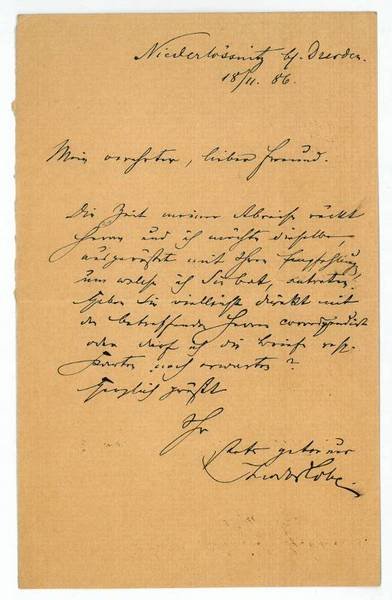 Niederlössnitz b/ Dresden.
18/11. 86.
Mein verehrter, lieber Freund.
Die Zeit meiner Abreise rückt
heran und ich möchte dieselbe,
ausgerüstet mit Ihrer Empfehlung
um welche ich Sie bat, antreten.
Haben Sie vielleicht direkt mit
den betreffenden Herren correspondirt
oder darf ich die Briefe resp.
Karten noch erwarten?
Herzlich grüßt
Ihr
stets getreuer
Theodor Lobe.